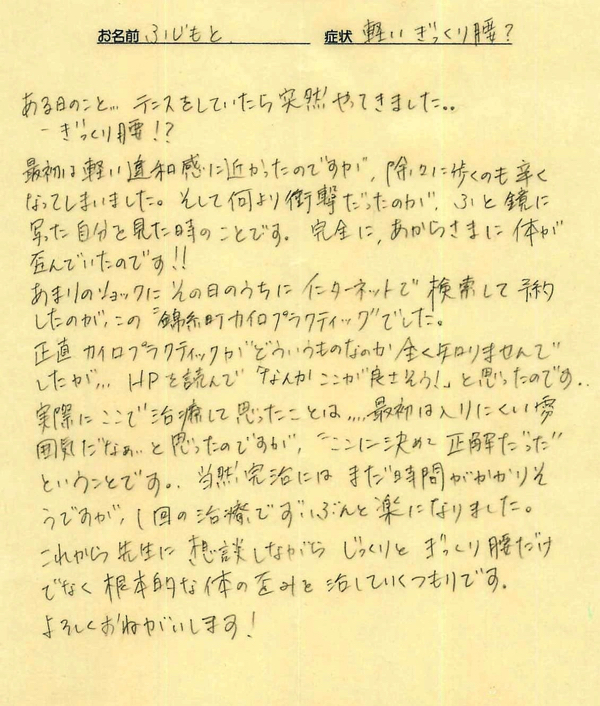 お名前 ふじもと 症状 軽いぎっくり腰?
ある日のこと... テニスをしていたら突然やってきました..
－ぎっくり腰!?
最初は軽い違和感に近かったのですが、除々に歩くのも辛く
なってしまいました。そして何より衝撃だったのが、ふと鏡に
写った自分を見た時のことです。完全に、あからさまに体が
歪んでいたのです!!
あまりのショックにその日のうちにインターネットで検索して予約
したのが、この"錦糸町カイロプラクティック"でした。
正直カイロプラクティックがどういうものなのか全く知りませんで
したが... HPを読んで「なんかここが良さそう!」と思ったのです..
実際にここで治療して思ったことは....最初は入りにくい雰
囲気だなぁ..と思ったのですが、"ここに決めて正解だった"
ということです.. 当然完治にはまだ時間がかかりそ
うですが、1回の治療でずいぶんと楽になりました。
これから先生に想談しながらじっくりとぎっくり腰だけ
でなく根本的な体の歪みを治していくつもりです。
よろしくおねがいします!